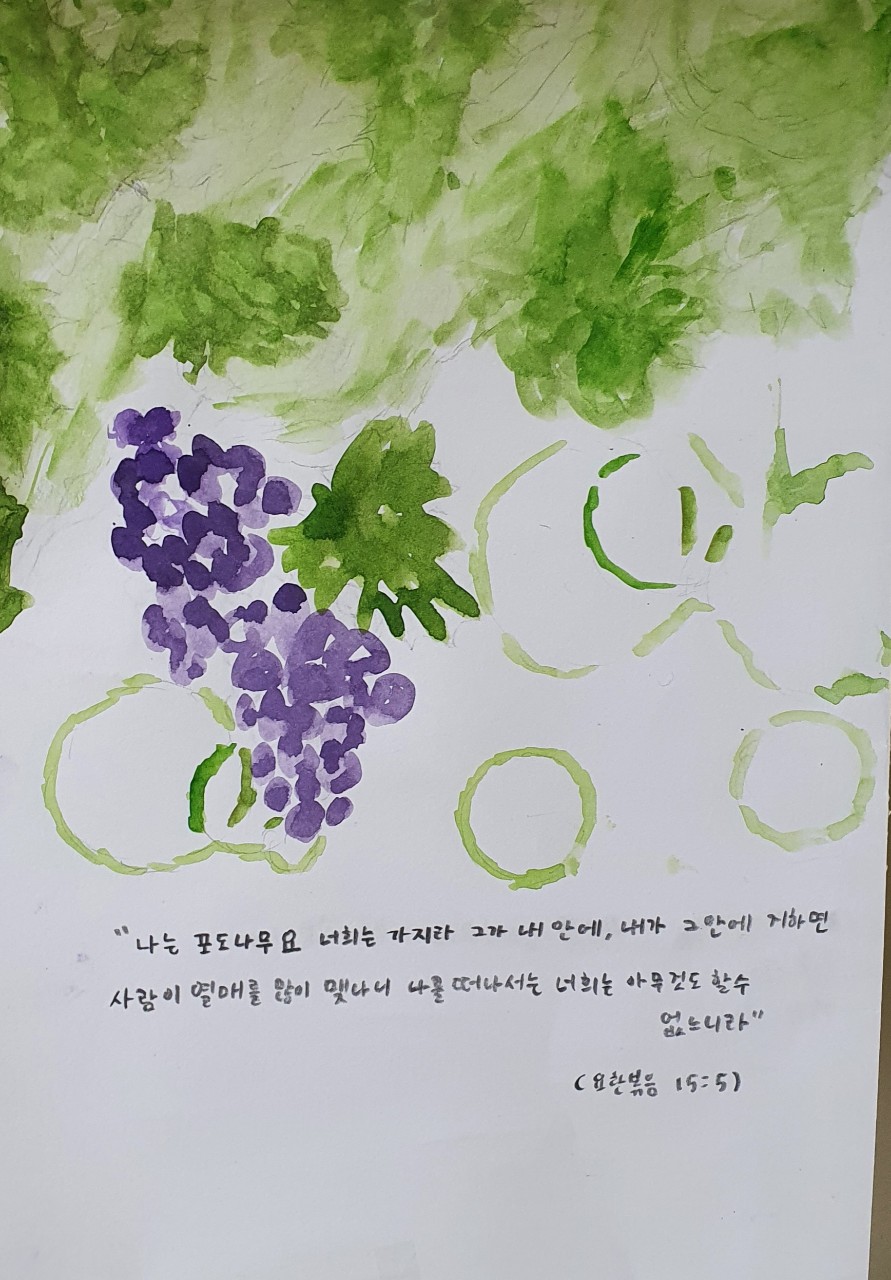 "나는 포도나무요 너희는 가지라 그가 내 안에, 내가 그안에 거하면
사람이 열매를 많이 맺나니 나를 떠나서는 너희는 아무것도 할수
없느니라"
(요한복음 15:5)